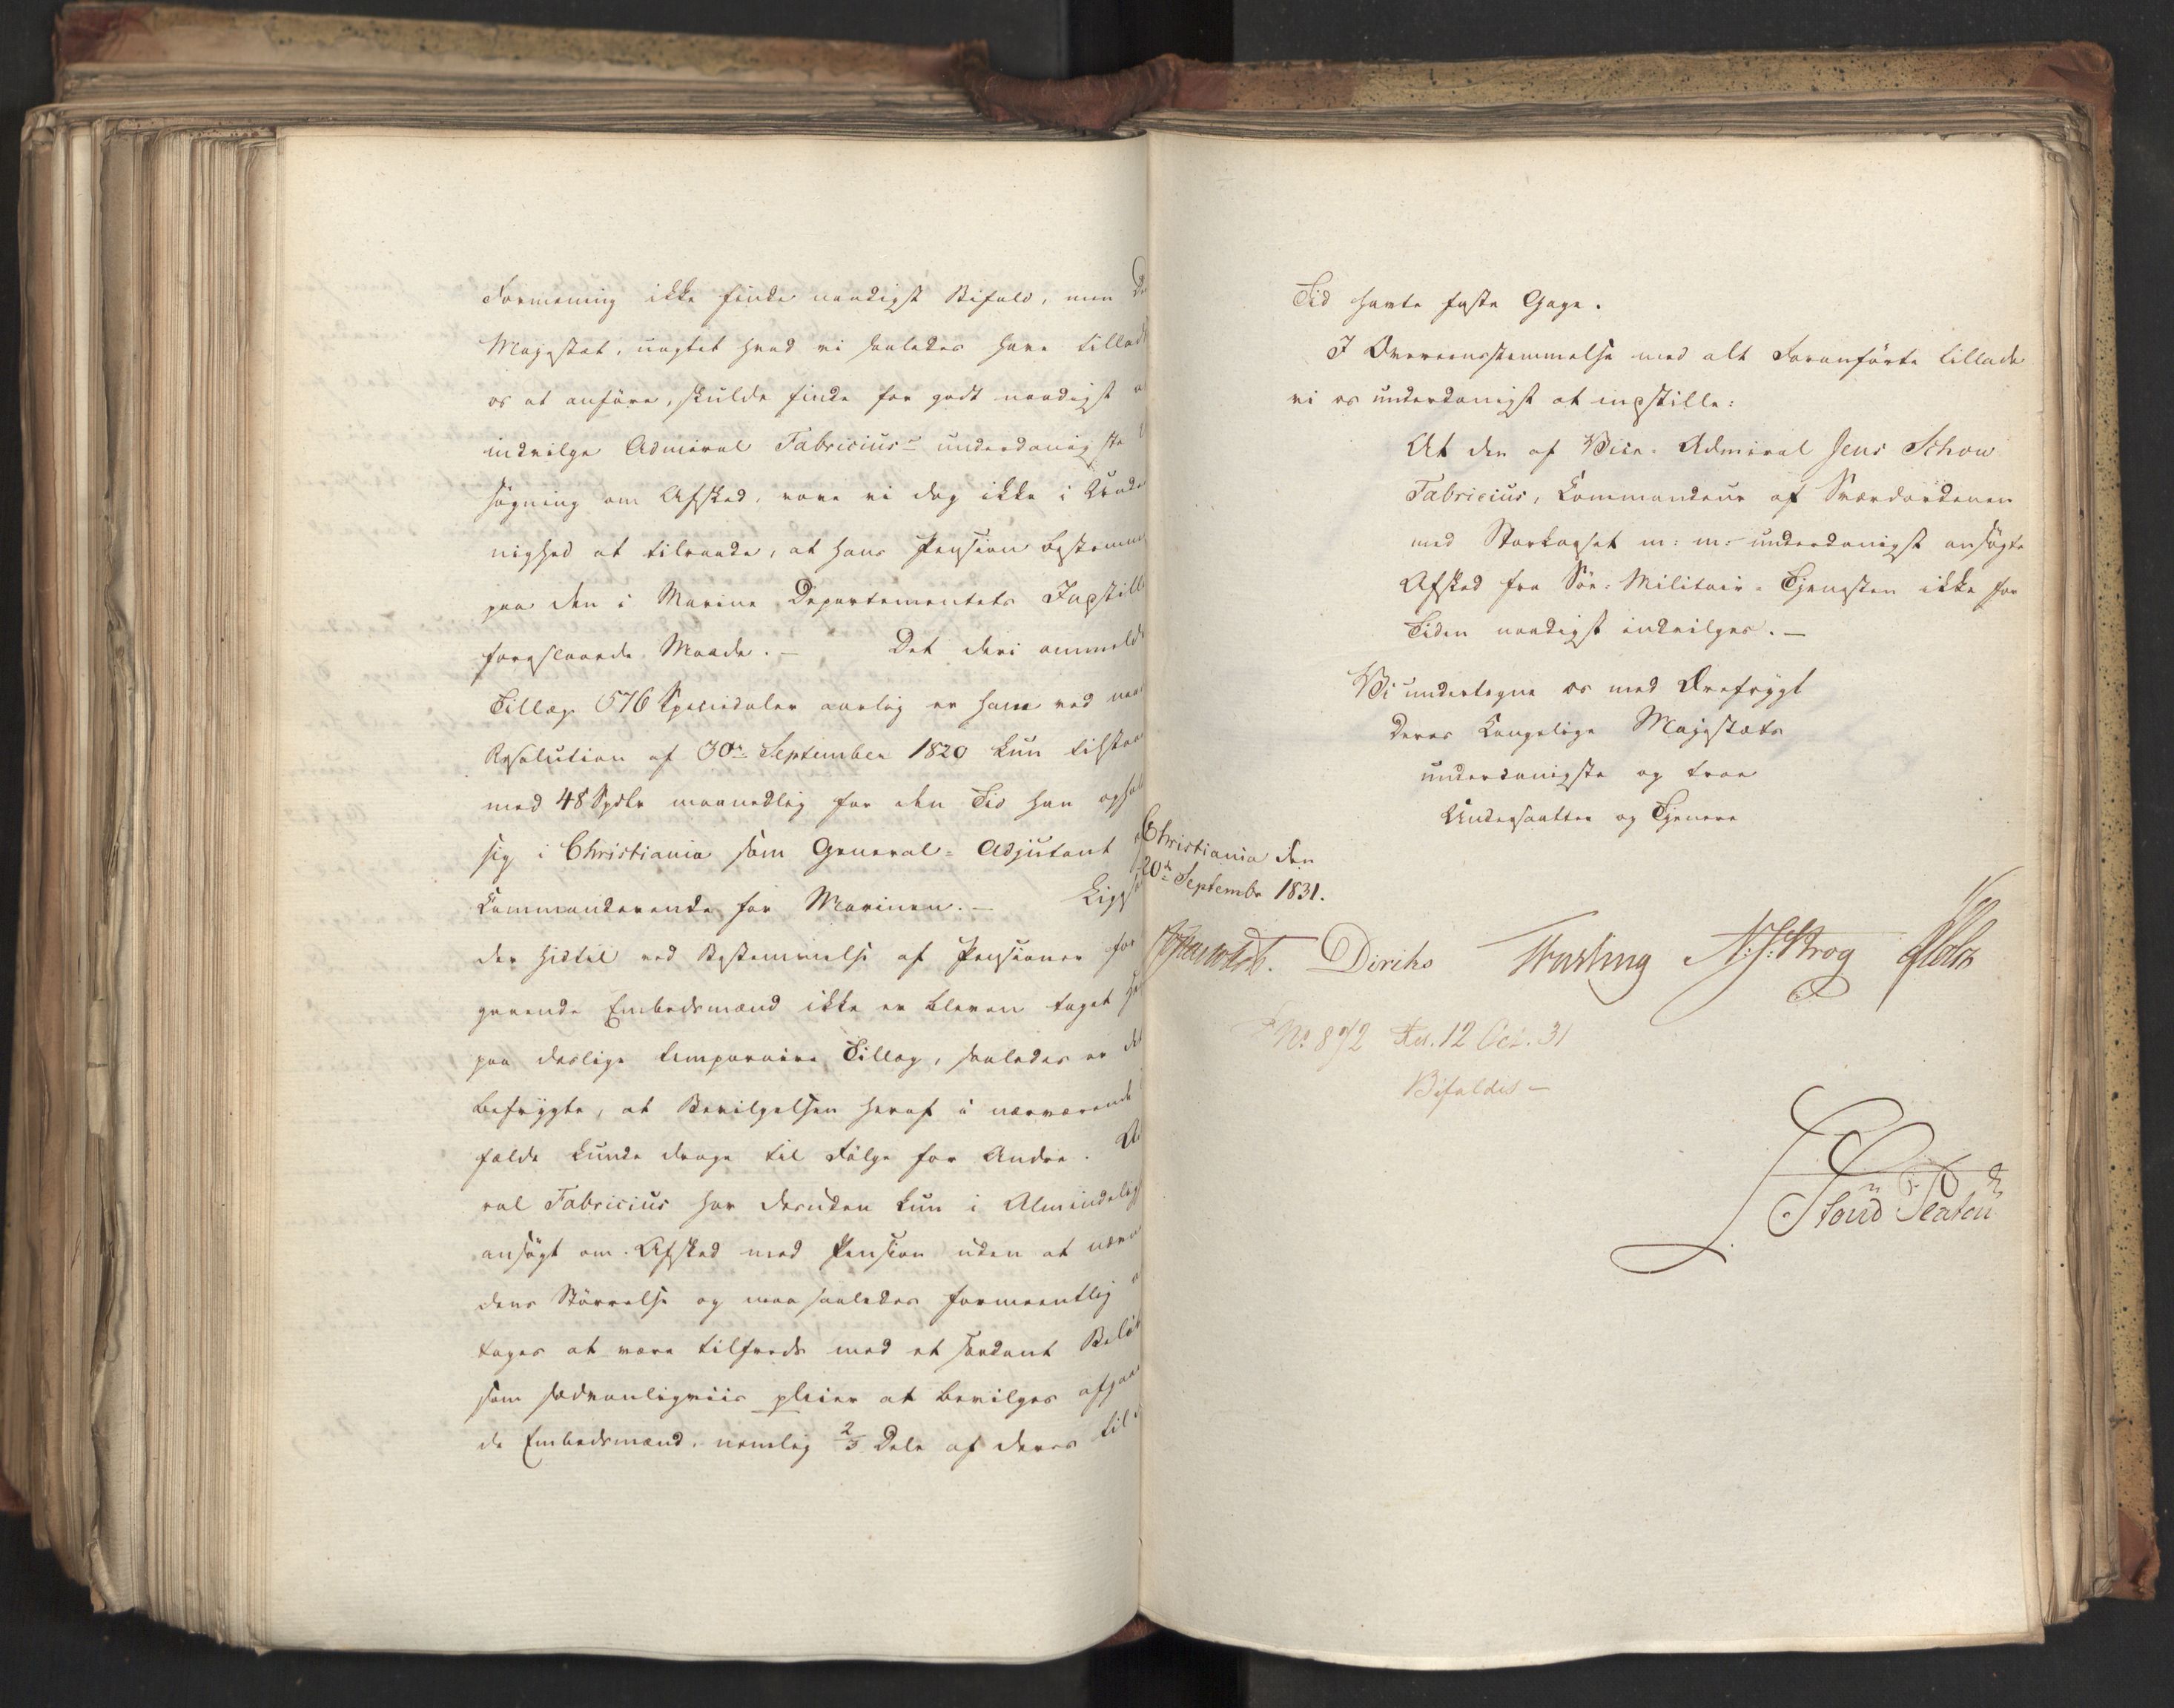 Formening ikke finde naadigst Bifald, men De
Majestæt, uagtet hvad vi saaledes have tillad
os at anføre, skulde finde for godt naadigst a
indvilge Admiral Fabricius's underdanigste
søgning om Afsked, vove vi dog ikke i Under
nighed at tilraade, at hans Pension bestemm
paa den i Marine Departementets Indstill
foreslaaede Maade. — Det deri anmeld
Tillæg 576 Speciedaler aarlig er ham ved naa
Resolution af 30te September 1820 kun tilstaa
med 48 Spdlr maanedlig for den Tid han ophol
sig i Christiania som General-Adjutant
Commanderende for Marinen. — Ligesaa
der hidtil ved Bestemmelse af Pensioner for
gaaende Embedsmænd ikke er bleven taget Hen
paa deslige temporaire Tillæg, saaledes er det
befrygte, at Bevilgelsen heraf i nærværende
fælde kunde drage til Følge for Andre. A
ral Fabricius har desuden kun i Almindelig
ansøgt om Afsked med Pension uden at næv
dens Størrelse og maa saaledes formeentlig
tages at være tilfreds med et saadant Beløb
som sædvanligviis pleier at bevilges afgaa
de Embedsmænd, nemlig 2/3 Dele af deres til
Tid havte faste Gage.
I Overeensstemmelse med alt Foranførte tillade
vi os underdanigst at indstille:
At den af Vice-Admiral Jens Schow
Fabricius, Commandeur af Sværdordenen
med Storkorset m: m: underdanigst ansøgte
Afsked fra Søe-Militair-Tjenesten ikke for
Tiden naadigst indvilges. —
Vi undertegne os med Ærefrygt
Deres Kongelige Majestæts
underdanigste og troe
Undersaatter og Tjenere
Christiania den
20de Septembr 1831.
Diriks N. J. Krog
No 872 Res. 12 Oct. 31
Bifaldes —
Stoud Platou